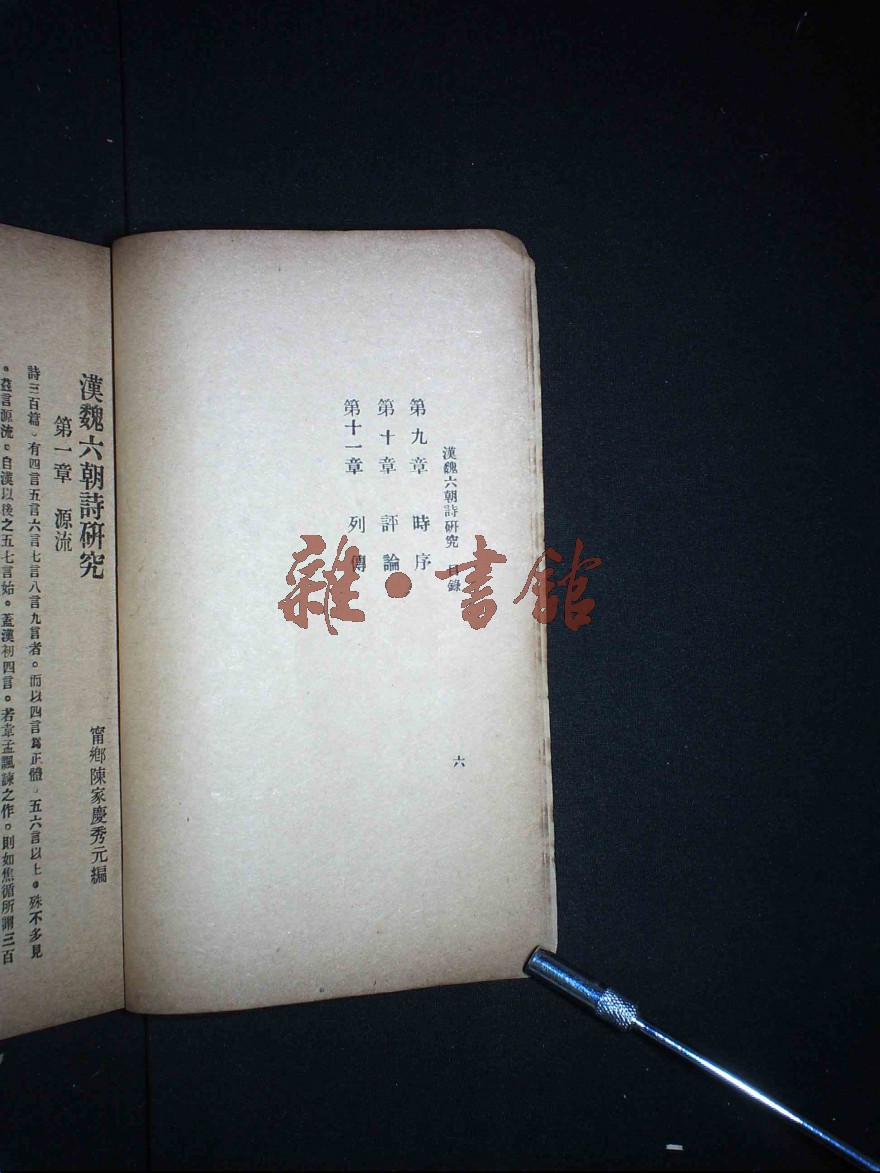 漢魏六朝詩研究　目錄
六
第九章　時序
第十章　評論
第十一章　列傳
漢魏六朝詩研究
甯鄉陳家慶秀元編
第一章　源流
詩三百篇。有四言五言六言七言八言九言者。而以四言爲正體。五六言以上。殊不多見
。茲言源流。自漢以後之五七言始。蓋漢初四言。若韋孟諷諫之作。則如焦循所謂三百
雜·書館